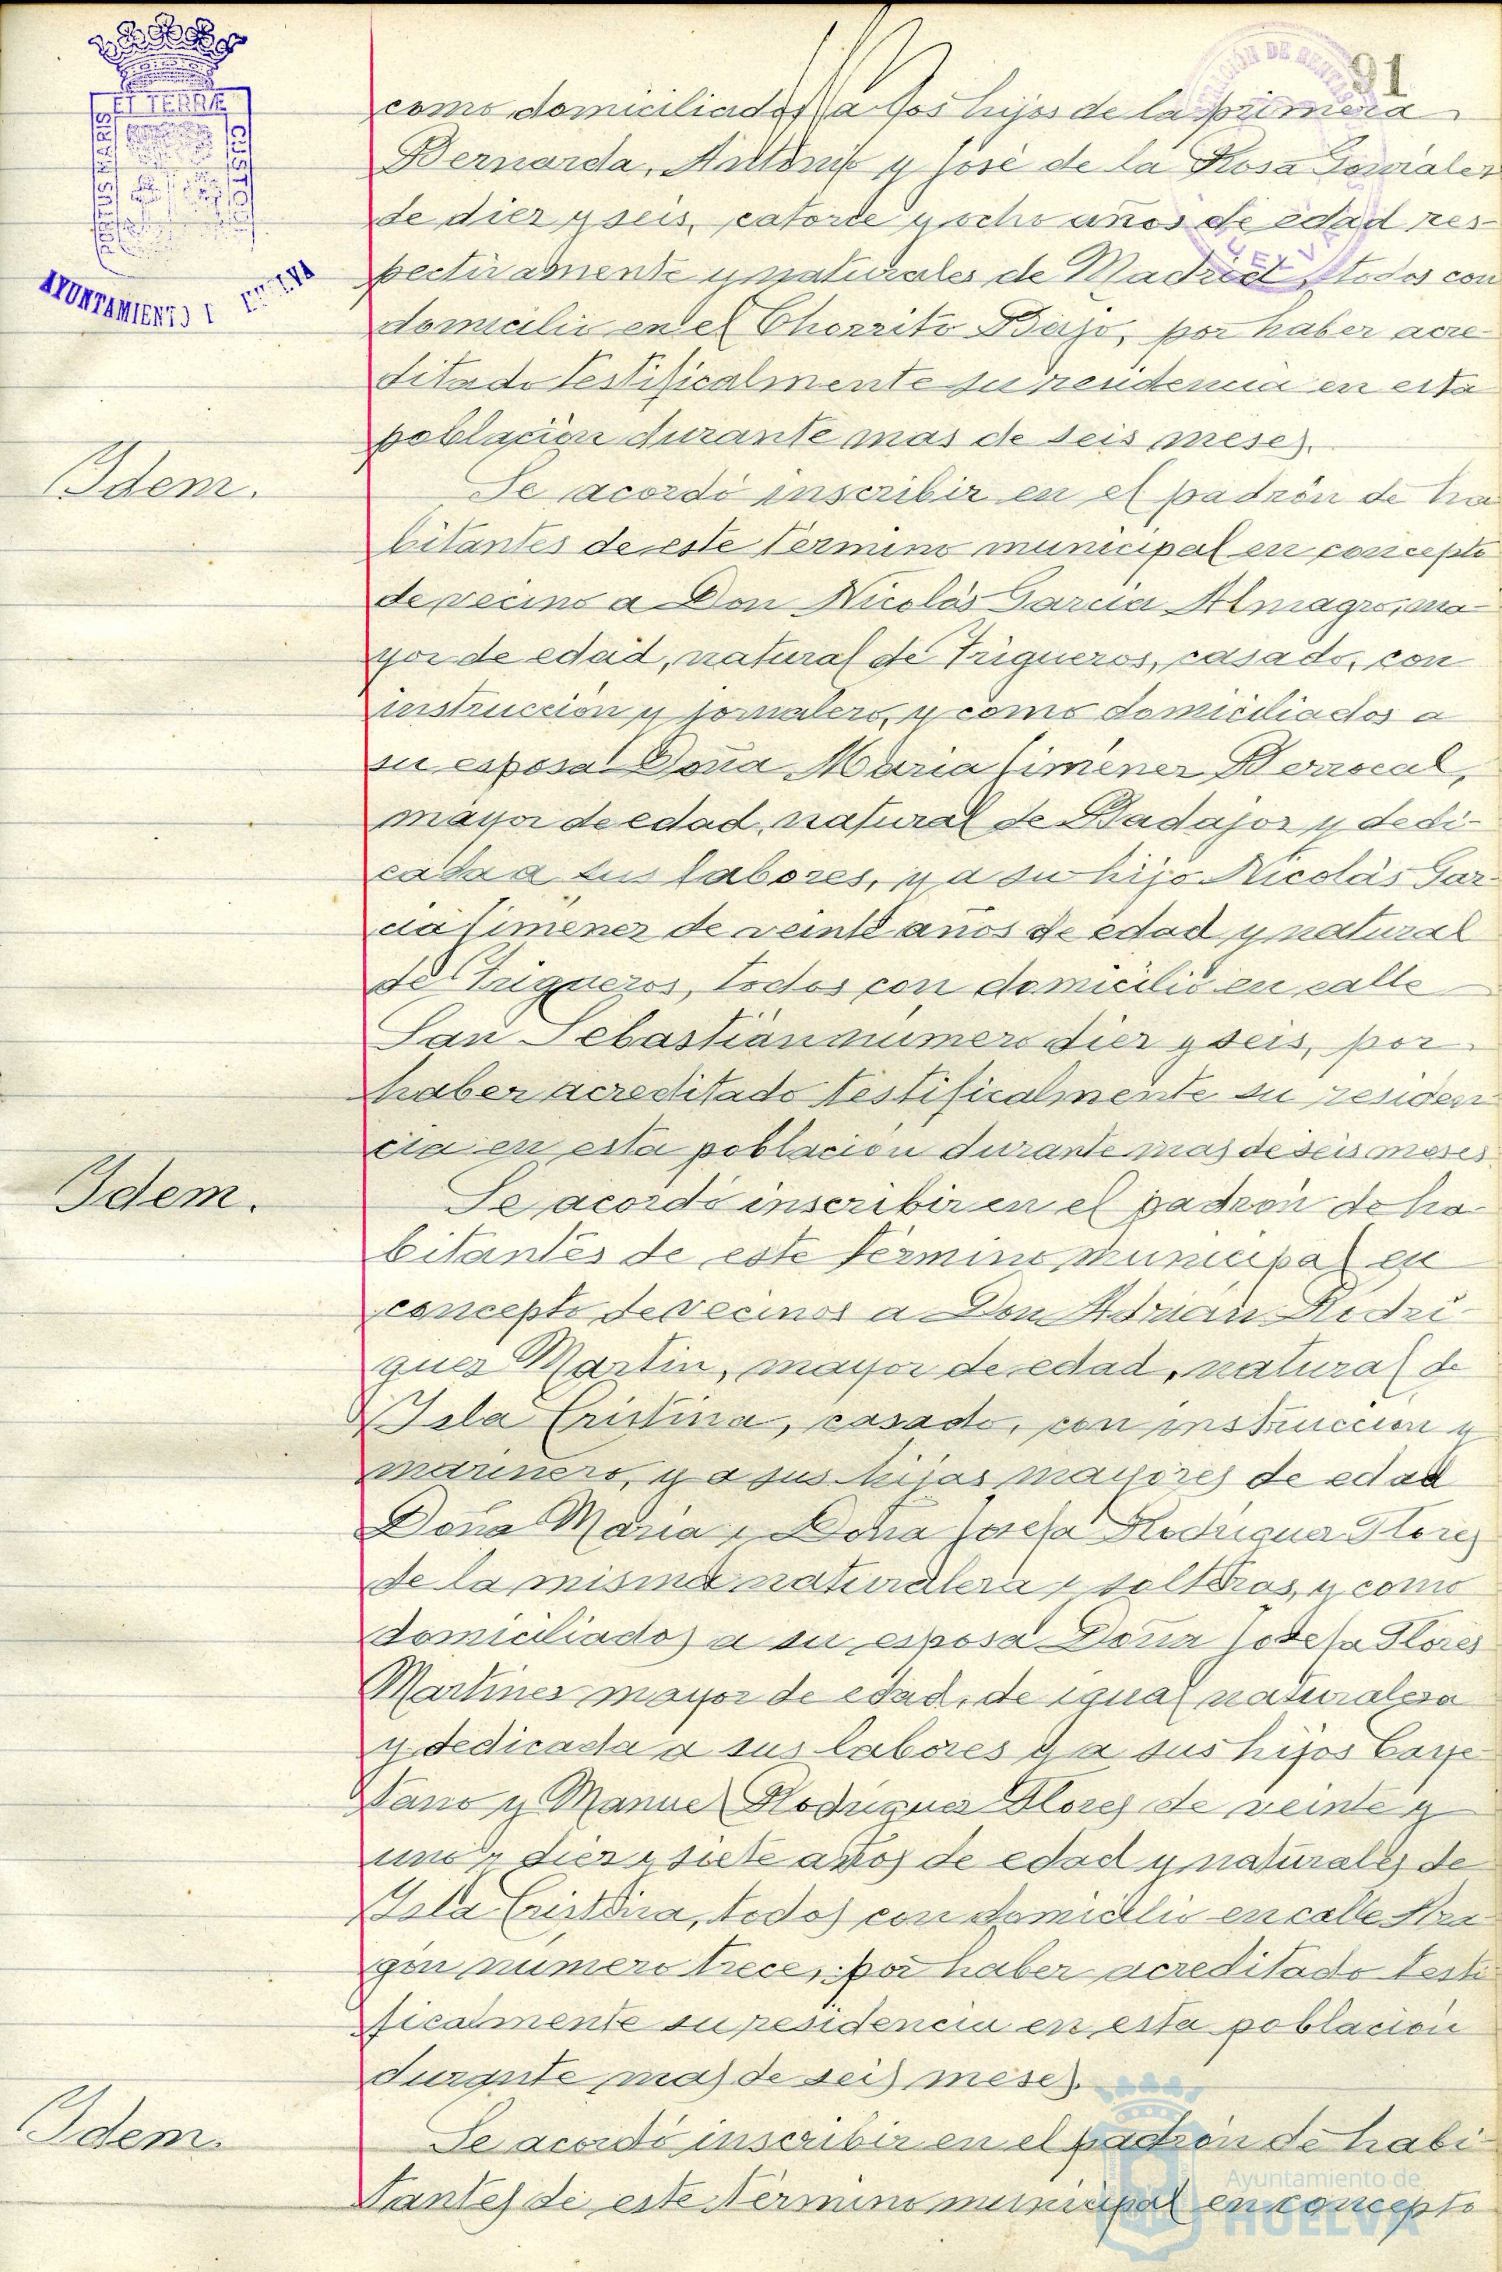 91
ET TERRÆ
AYUNTAMIENTO
como domiciliados a los hijos de la primera
Bernarda, Antonio y José de la Rosa Gonzalez
de diez y seis, catorce y ocho años de edad res-
pectivamente y naturales de Madrid, todos con
domicilio en el Chorrito Bajo, por haber acre-
ditado testificalmente su residencia en esta
población durante mas de seis meses.
Idem.
Se acordó inscribir en el padrón de ha
bitantes de este término municipal en concepto
de vecino a Don Nicolás Garcia Almagro, ma-
yor de edad, natural de Trigueros, casado, con
instrucción y jornalero, y como domiciliados a
su esposa Doña Maria Jiménez Berrocal,
mayor de edad, natural de Badajoz y dedi-
cada a sus labores, y a su hijo Nicolás Gar-
cia Jiménez de veinte años de edad y natural
de Trigueros, todos con domicilio en calle
San Sebastián número diez y seis, por
haber acreditado testificalmente su residen
cia en esta población durante mas de seis meses
Idem.
Se acordó inscribir en el padrón de ha-
bitantes de este término municipal en
concepto de vecinos a Don Adrián Rodri-
guez Martin, mayor de edad, natural de
Isla Cristina, casado, con instrucción y
marinero, y a sus hijas mayores de edad
Doña Maria y Doña Josefa Rodriguez Flores
de la misma naturaleza y solteras, y como
domiciliados a su esposa Doña Josefa Flores
Martinez mayor de edad, de igual naturaleza
y dedicada a sus labores y a sus hijos Caye-
tano y Manuel Rodriguez Flores de veinte y
uno y diez y siete años de edad y naturales de
Isla Cristina, todos con domicilio en calle Ara
gón número trece, por haber acreditado testi
ficalmente su residencia en esta población
durante mas de seis meses.
Idem.
Se acordó inscribir en el padrón de habi-
tantes de este término municipal en concepto
Ayuntamiento de
HUELVA